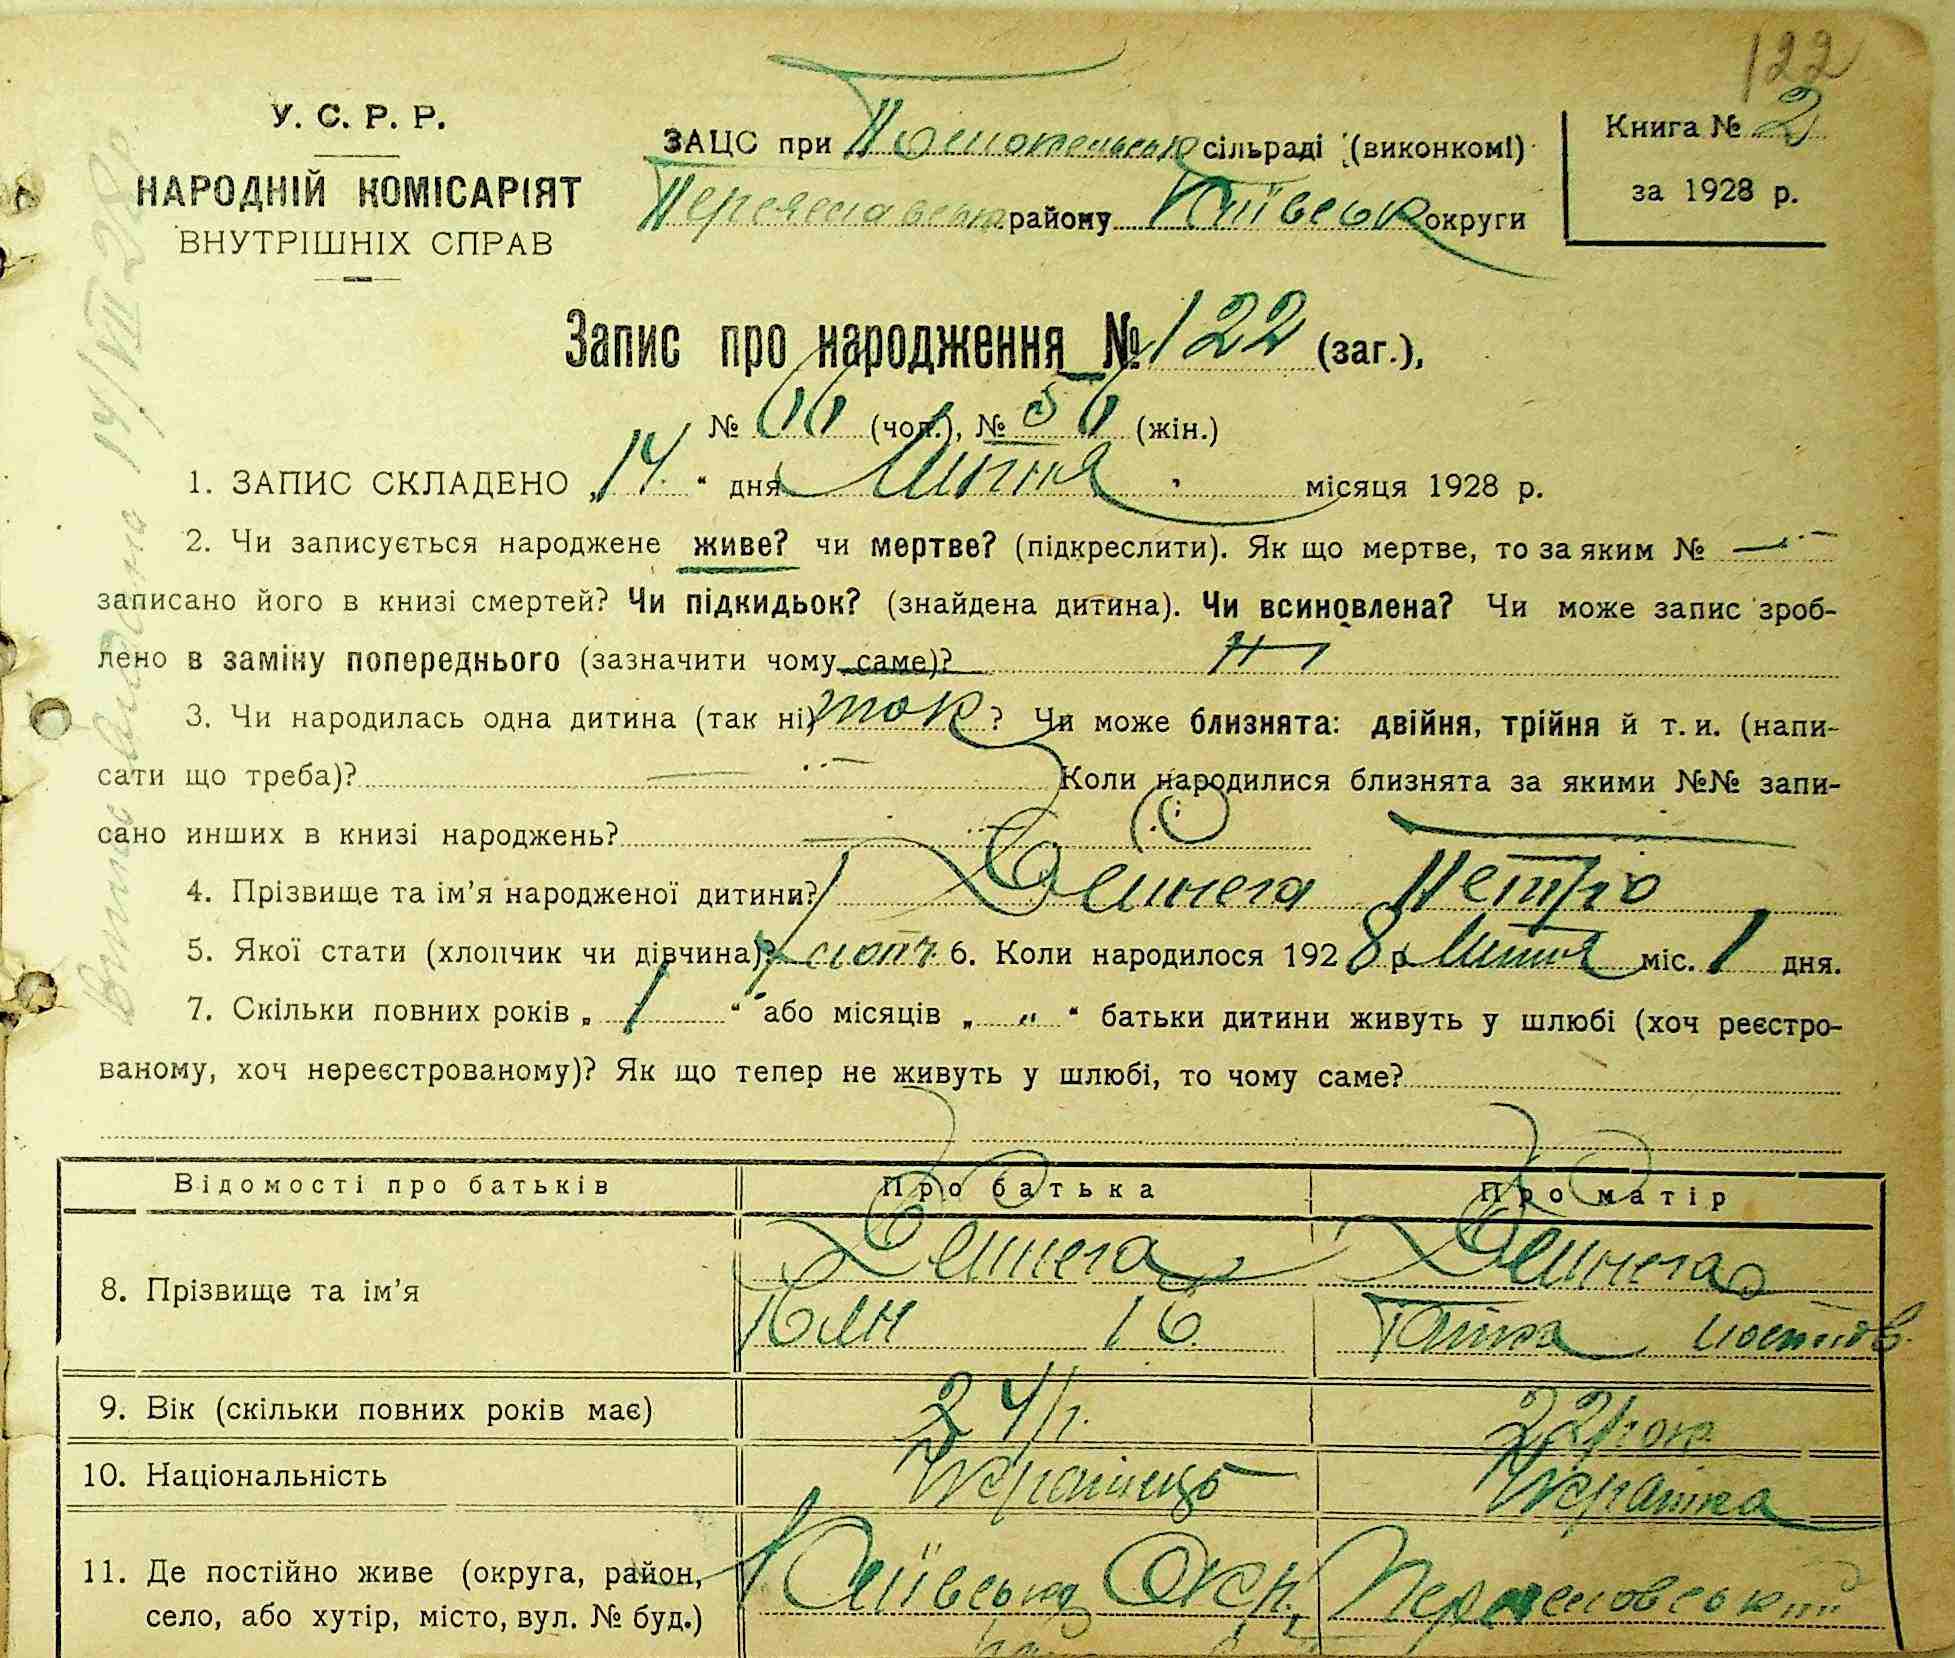 122
У. С. Р. Р.
НАРОДНІЙ КОМІСАРІЯТ
ВНУТРІШНІХ СПРАВ
ЗАЦС при сільраді (виконкомі)
Переяславськ району Київськ округи
Книга № 2
за 1928 р.
Запис про народження № 122 (заг.),
№ 66 (чол.), № 56 (жін.)
1. ЗАПИС СКЛАДЕНО „14.“ дня Липня місяця 1928 р.
2. Чи записується народжене живе? чи мертве? (підкреслити). Як що мертве, то за яким № —
записано його в книзі смертей? Чи підкидьок? (знайдена дитина). Чи всиновлена? Чи може запис зроб-
лено в заміну попереднього (зазначити чому саме)?
3. Чи народилась одна дитина (так ні) так? Чи може близнята: двійня, трійня й т. и. (напи-
сати що треба)? Коли народилися близнята за якими №№ запи-
сано инших в книзі народжень?
4. Прізвище та ім’я народженої дитини? Дейнега Петро
5. Якої стати (хлопчик чи дівчина)? хлопч. 6. Коли народилося 1928 р. Липня міс. 1 дня.
7. Скільки повних років „ 1 “ або місяців „ „ “ батьки дитини живуть у шлюбі (хоч реєстро-
ваному, хоч нереєстрованому)? Як що тепер не живуть у шлюбі, то чому саме?
Відомості про батьків Про батька Про матір
8. Прізвище та ім’я Дейнега Дейнега
9. Вік (скільки повних років має) 24 р. 22 рок
10. Національність Українець Українка
11. Де постійно живе (округа, район,
село, або хутір, місто, вул. № буд.) Київська Окр.